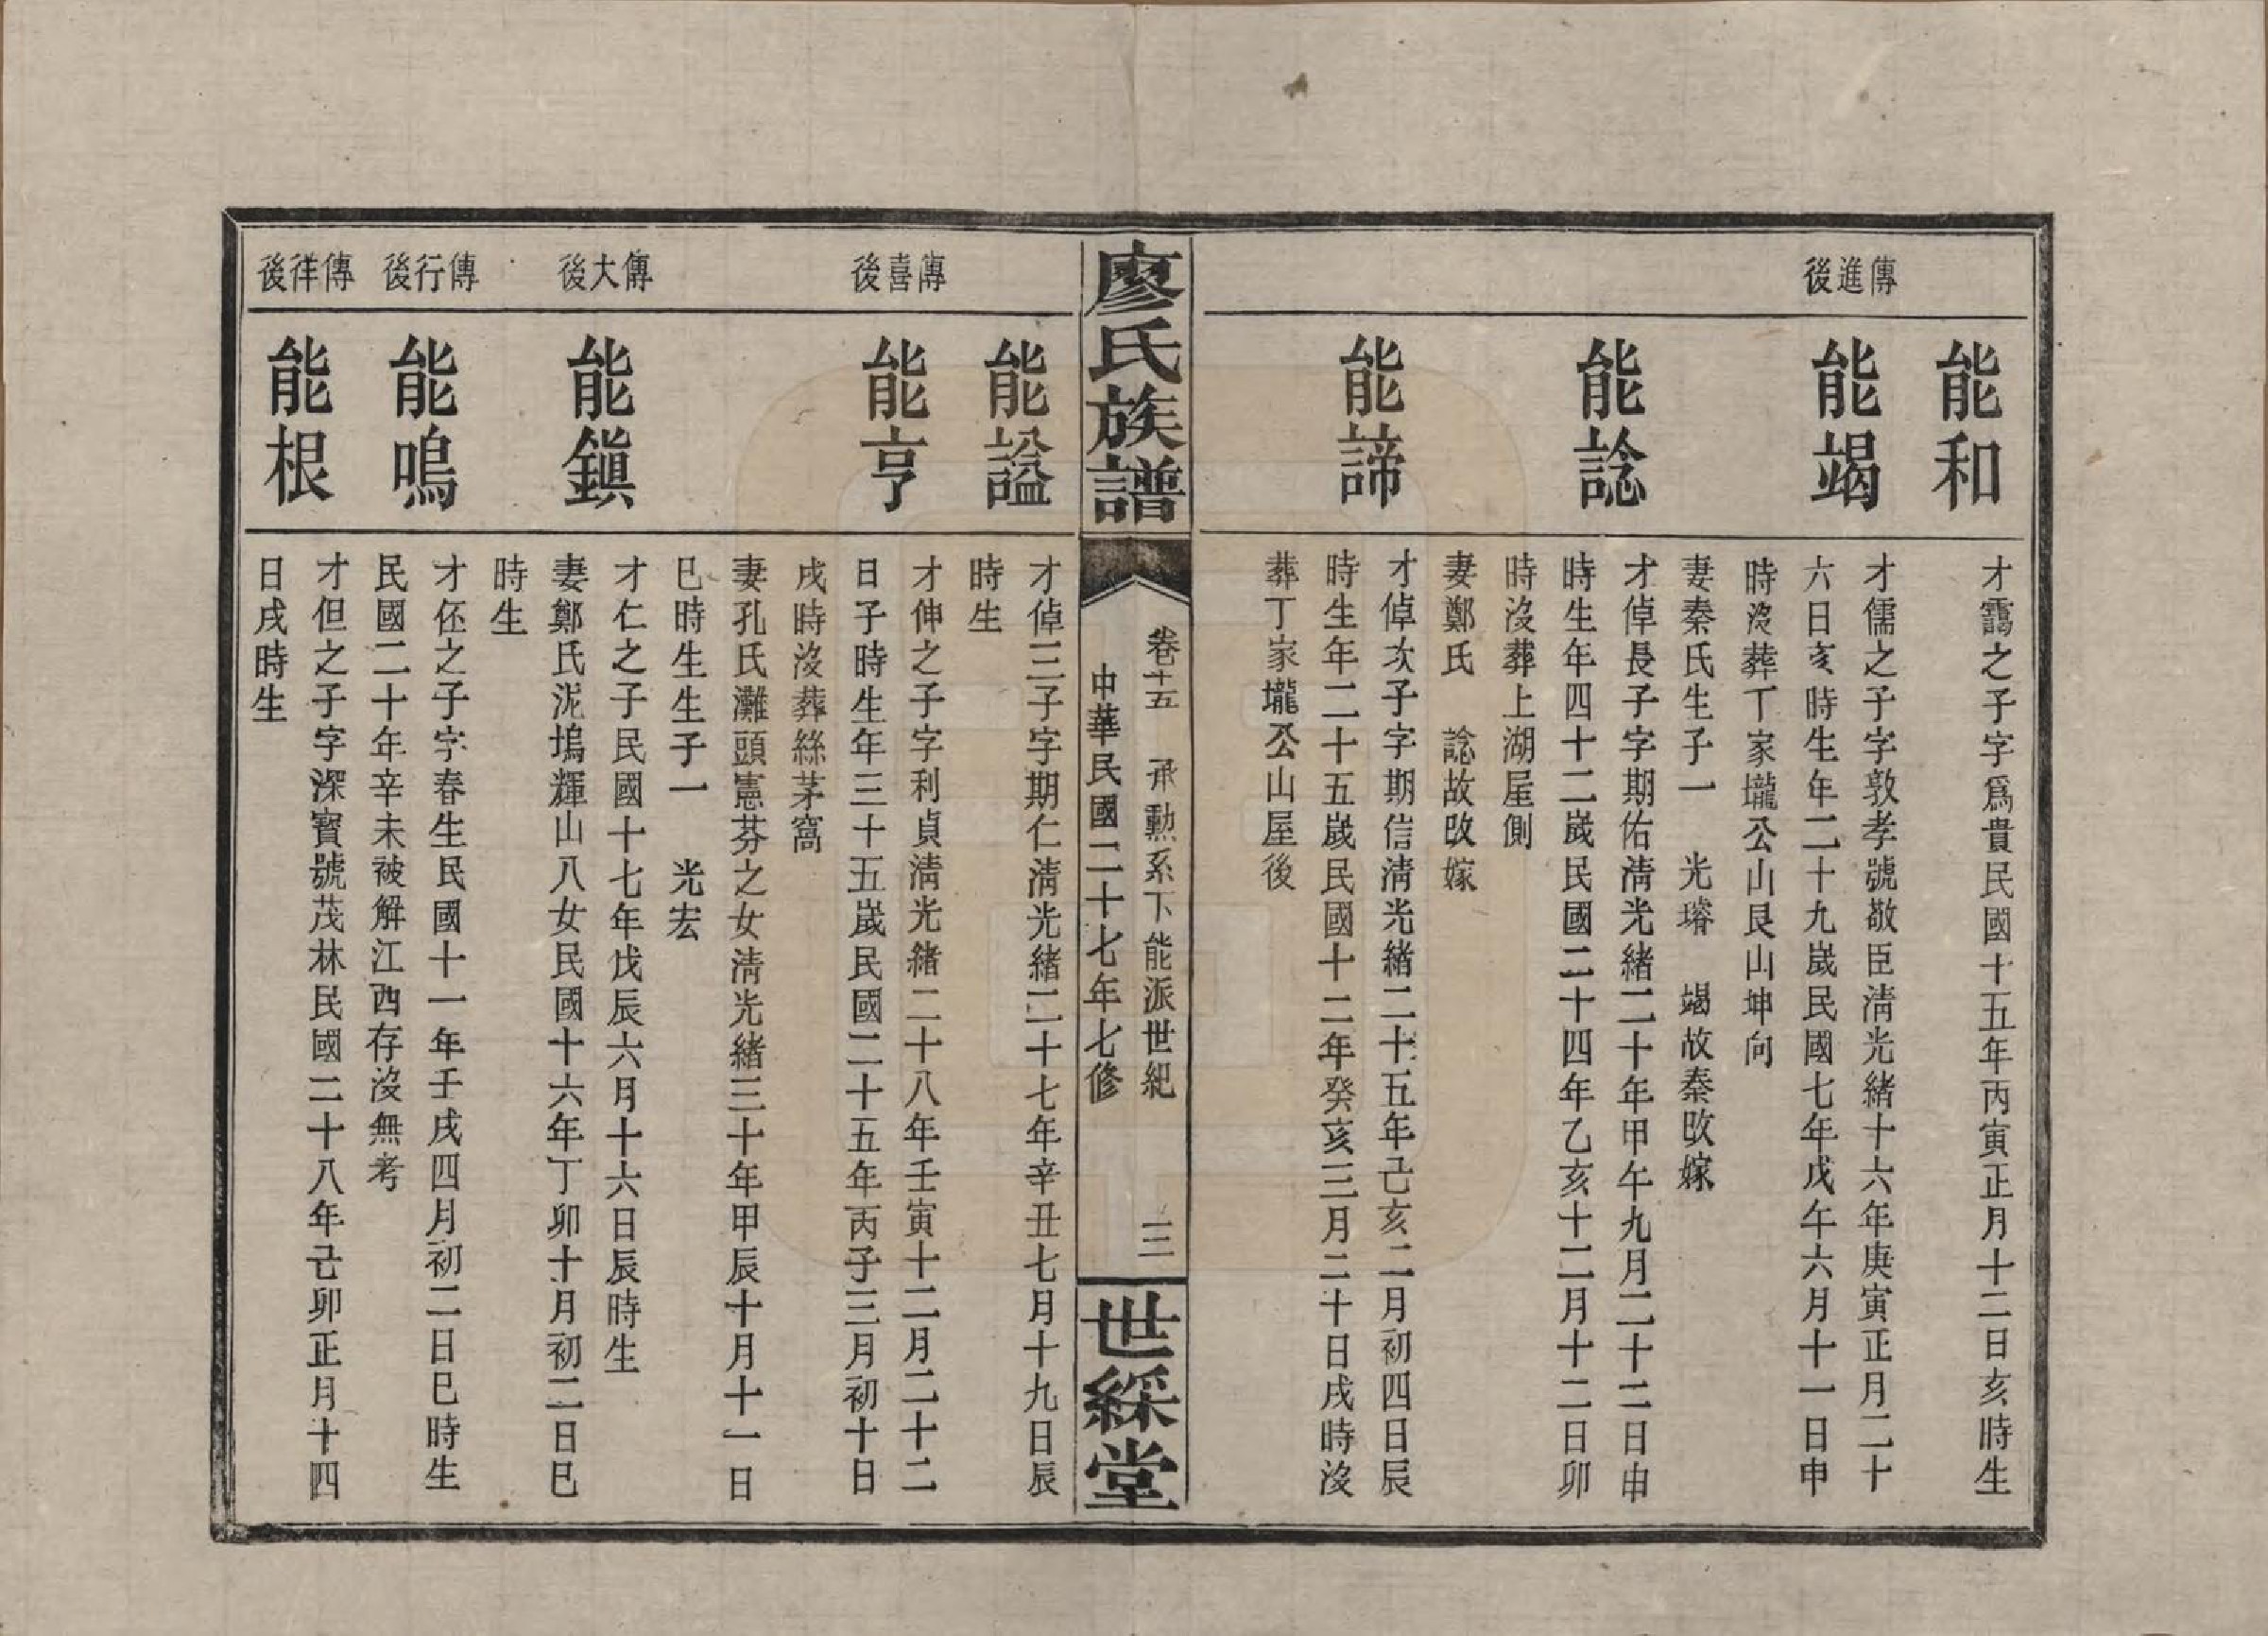 能和
才靄之子字爲貴民國十五年丙寅正月十二日亥時生
傳進後
能竭
才儒之子字敦孝號敬臣淸光緖十六年庚寅正月二十
六日亥時生年二十九歲民國七年戊午六月十一日申
時沒葬丁家壠公山艮山坤向
妻秦氏生子一　光璿　竭故秦改嫁
能諗
才倬長子字期佑淸光緖二十年甲午九月二十二日申
時生年四十二歲民國二十四年乙亥十二月十二日卯
時沒葬上湖屋側
妻鄭氏　諗故改嫁
能諦
才倬次子字期信淸光緖二十五年己亥二月初四日辰
時生年二十五歲民國十二年癸亥三月二十日戌時沒
葬丁家壠公山屋後
廖氏族譜
卷十五　承勳系下能派世紀　三
中華民國二十七年七修
世綵堂
能謚
才倬三子字期仁淸光緖二十七年辛丑七月十九日辰
時生
傳喜後
能亨
才伸之子字利貞淸光緖二十八年壬寅十二月二十二
日子時生年三十五歲民國二十五年丙子三月初十日
戌時沒葬絲茅窩
妻孔氏灘頭憲芬之女淸光緖三十年甲辰十月十一日
巳時生生子一　光宏
傳大後
能鎭
才仁之子民國十七年戊辰六月十六日辰時生
妻鄭氏泥塢輝山八女民國十六年丁卯十月初二日巳
時生
傳行後
能鳴
才伾之子字春生民國十一年壬戌四月初二日巳時生
民國二十年辛未被解江西存沒無考
傳徉後
能根
才但之子字深寳號茂林民國二十八年己卯正月十四
日戌時生